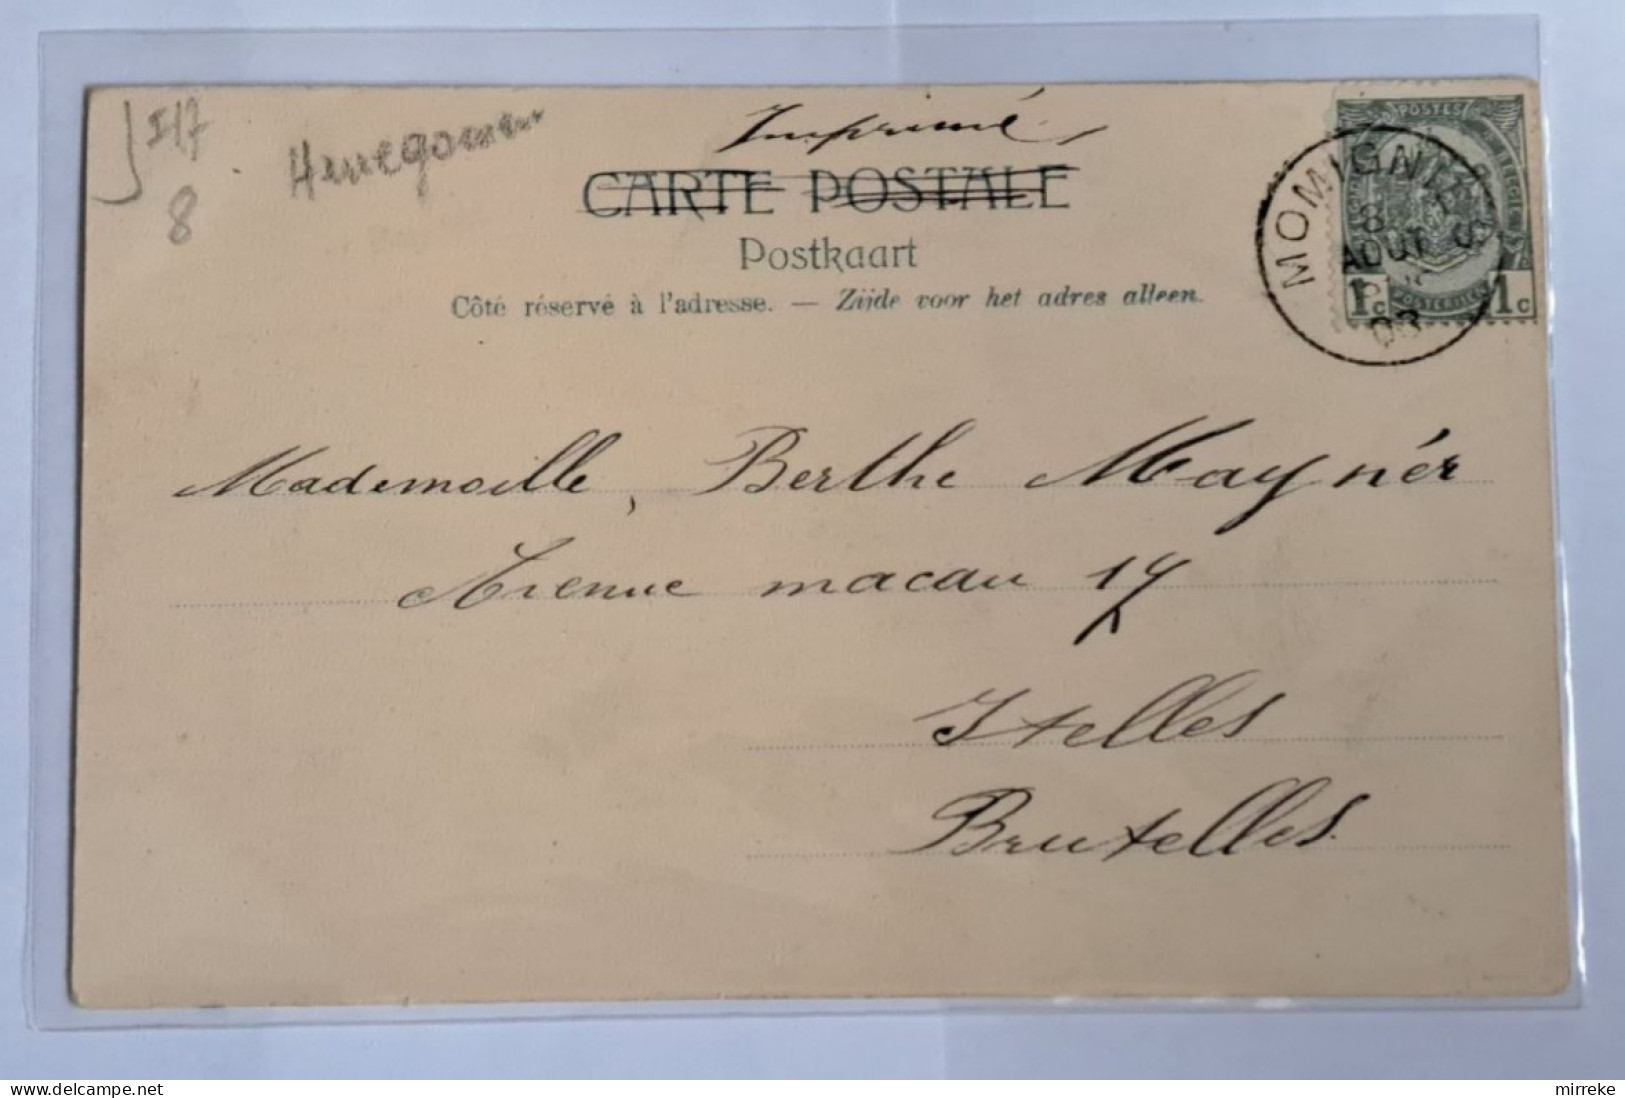 I/7
8
Henegouwen
Imprimé
CARTE POSTALE
Postkaart
Côté réservé à l'adresse. — Zijde voor het adres alleen.
POSTES
MOMIGNIES
8
AOUT
03
1c 1c
Mademoiselle, Berthe Maynér
Avenue macau 14
Ixelles
Bruxelles
delcampe.net
mirreke